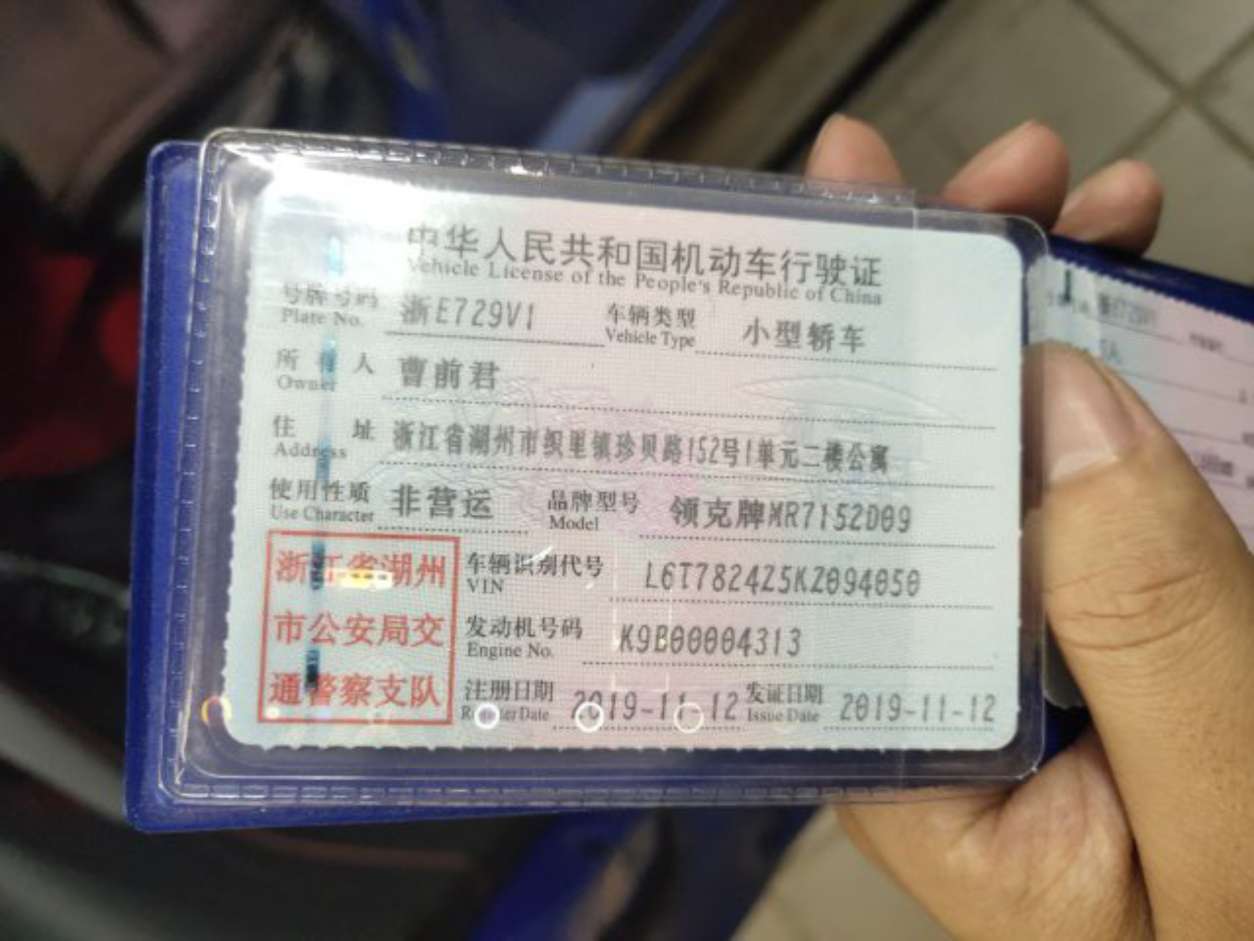 中华人民共和国机动车行驶证
Vehicle License of the People's Republic of China
号牌号码 浙E729V1 车辆类型 小型轿车
Plate No. Vehicle Type
所有人 曹前君
Owner
住址 浙江省湖州市织里镇珍贝路152号1单元二楼公寓
Address
使用性质 非营运 品牌型号 领克牌MR7152D09
Use Character Model
浙江省湖州
市公安局交
通警察支队
车辆识别代号 L6T7824Z5KZ094050
VIN
发动机号码 K9B00004313
Engine No.
注册日期 2019-11-12 发证日期 2019-11-12
Register Date Issue Date